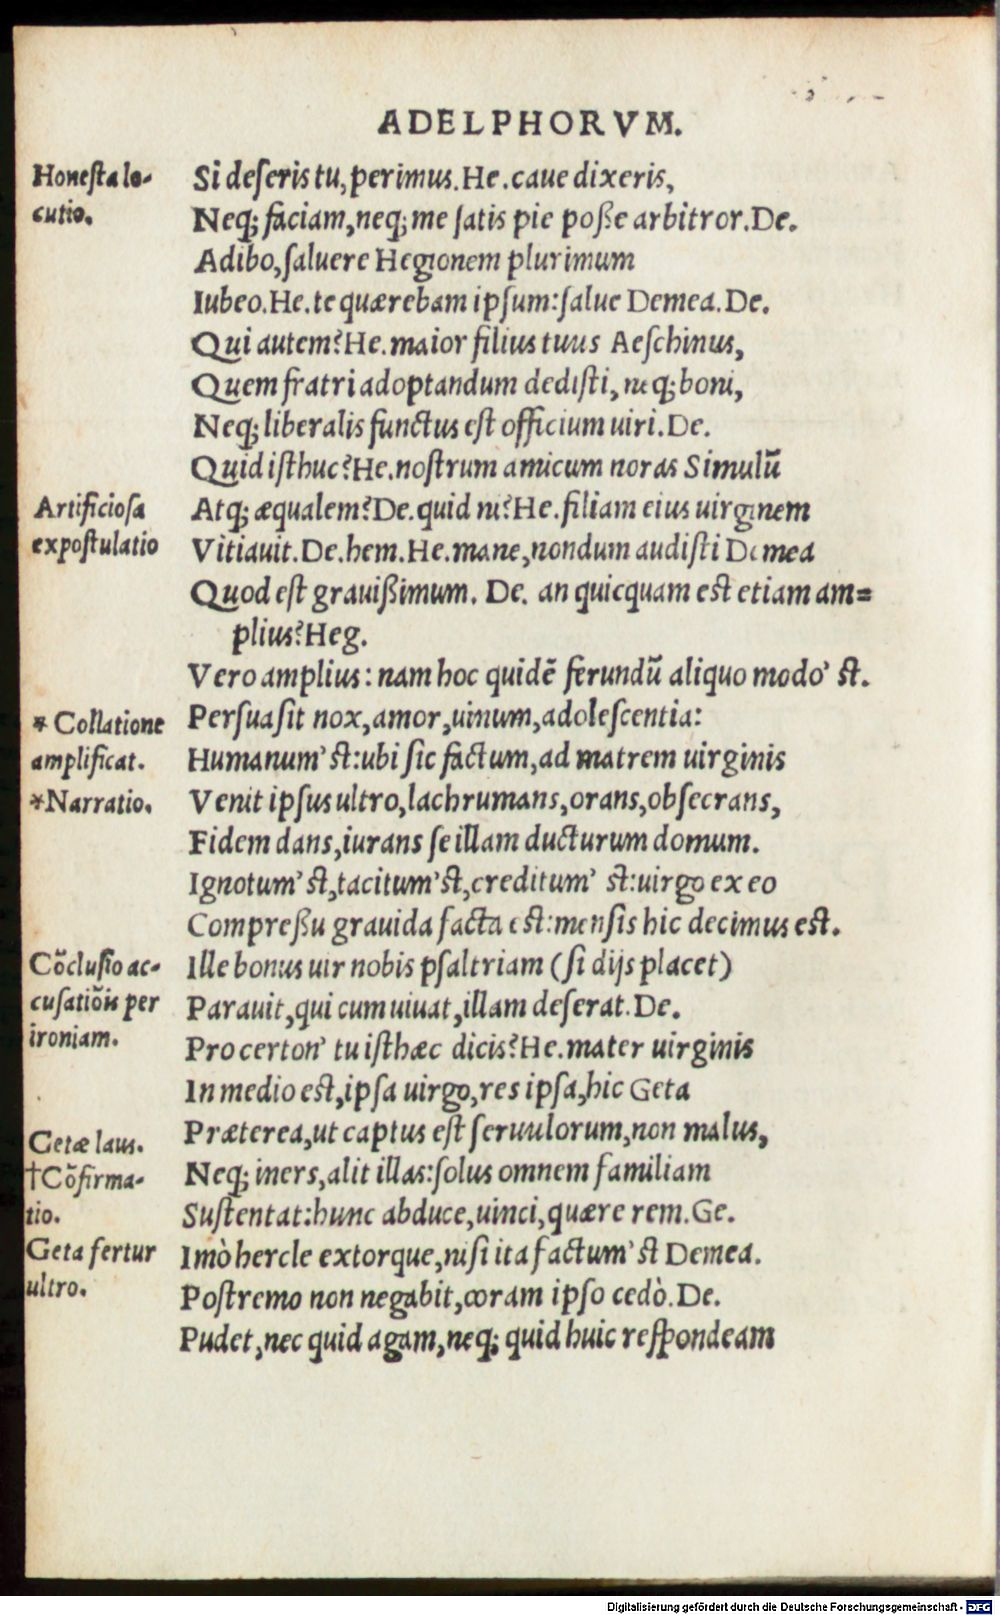 ADELPHORVM.
Honesta lo-
cutio.
Si deſeris tu, perimus. He. caue dixeris,
Neq; faciam, neq; me ſatis pie poſſe arbitror. De.
Adibo, ſaluere Hegionem plurimum
Iubeo. He. te quærebam ipſum: ſalue Demea. De.
Qui autem? He. maior filius tuus Aeſchinus,
Quem fratri adoptandum dediſti, neq; boni,
Neq; liberalis functus eſt officium uiri. De.
Quid iſthuc? He. noſtrum amicum noras Simulū
Artificioſa
expoſtulatio
Atq; æqualem? De. quid ni? He. filiam eius uirginem
Vitiauit. De. hem. He. mane, nondum audiſti Demea
Quod eſt grauißimum. De. an quicquam eſt etiam am=
plius? Heg.
Vero amplius: nam hoc quidē ferundū aliquo modo’ ſt.
* Collatione
amplificat.
*Narratio.
Perſuaſit nox, amor, uinum, adoleſcentia:
Humanum’ ſt: ubi ſic factum, ad matrem uirginis
Venit ipſus ultro, lachrumans, orans, obſecrans,
Fidem dans, iurans ſe illam ducturum domum.
Ignotum’ ſt, tacitum’ ſt, creditum’ ſt: uirgo ex eo
Compreßu grauida facta eſt: menſis hic decimus eſt.
Cōcluſio ac-
cuſatiōis per
ironiam.
Ille bonus uir nobis pſaltriam (ſi dijs placet)
Parauit, qui cum uiuat, illam deſerat. De.
Pro certon’ tu iſthæc dicis? He. mater uirginis
In medio eſt, ipſa uirgo, res ipſa, hic Geta
Getæ laus.
†Cōfirma-
tio.
Geta fertur
ultro.
Præterea, ut captus eſt ſeruulorum, non malus,
Neq; iners, alit illas: ſolus omnem familiam
Suſtentat: hunc abduce, uinci, quære rem. Ge.
Imò hercle extorque, niſi ita factum’ ſt Demea.
Poſtremo non negabit, coram ipſo cedò. De.
Pudet, nec quid agam, neq; quid huic reſpondeam
Digitalisierung gefördert durch die Deutsche Forschungsgemeinschaft - DFG